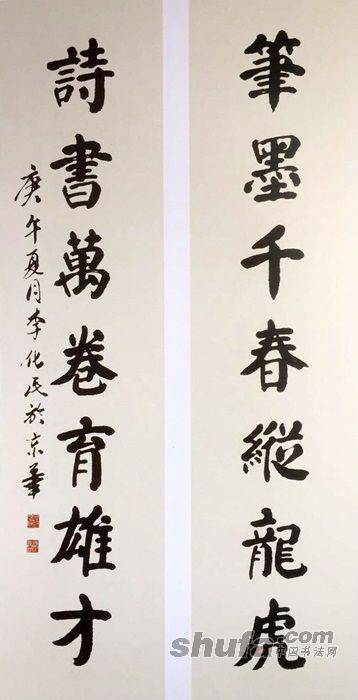 筆墨千春縱龍虎
詩書萬卷育雄才
庚午夏月李化民於東華
shufa.com
中国书法网